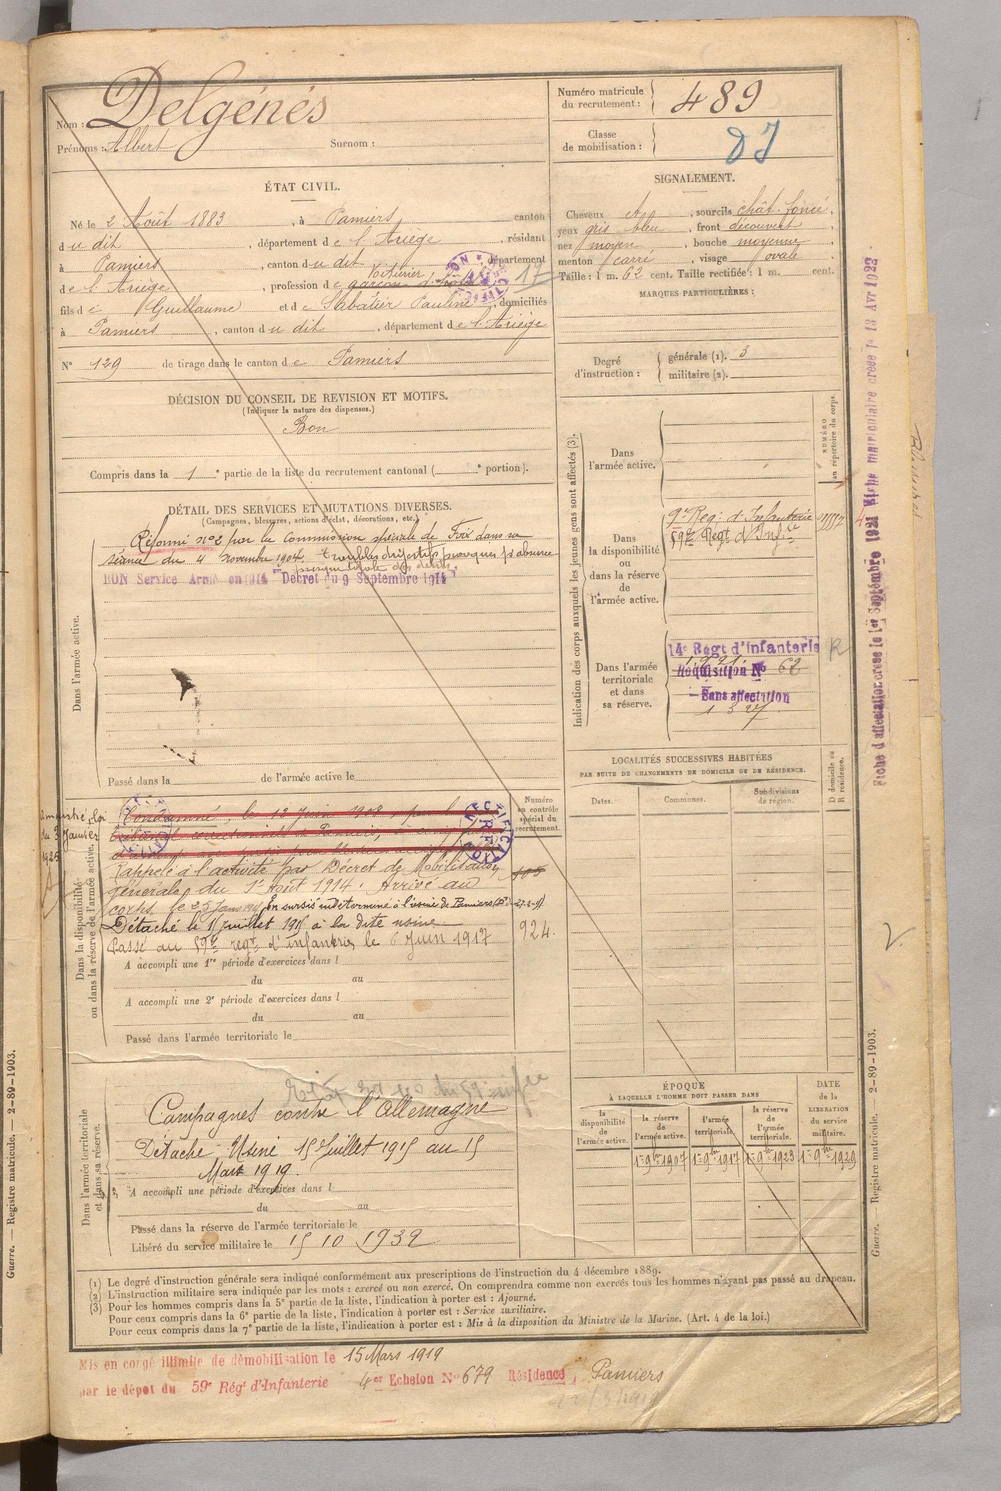 Nom : Delgénés
Prénoms : Albert Surnom :
Numéro matricule
du recrutement : 489
Classe
de mobilisation :
ÉTAT CIVIL.
Né le 2 Août 1883, à Pamiers, canton
du dit, département de l'Ariège, résidant
à Pamiers, canton du dit, département
Voiturier
de l'Ariège, profession de garçon d'
17
fils de Guillaume et de Sabatier Pauline, domiciliés
à Pamiers, canton du dit, département de l'Ariège
N° 129 de tirage dans le canton de Pamiers
SIGNALEMENT.
Cheveux et, sourcils chât. foncé,
yeux gris bleu, front découvert,
nez moyen, bouche moyenne,
menton carré, visage ovale.
Taille : 1 m. 62 cent. Taille rectifiée : 1 m. cent.
MARQUES PARTICULIÈRES :
Degré
d'instruction :
générale (1). 3
militaire (2).
DÉCISION DU CONSEIL DE REVISION ET MOTIFS.
(Indiquer la nature des dispenses.)
Bon
Compris dans la 1e partie de la liste du recrutement cantonal ( e portion).
DÉTAIL DES SERVICES ET MUTATIONS DIVERSES.
(Campagnes, blessures, actions d'éclat, décorations, etc.)
Dans l'armée active.
Réformé n° 2 par la Commission spéciale de Foix dans sa
séance du 4 novembre 1904. troubles digestifs provoqués p. absence
presque totale des dents.
BON Service Armé en 1914 Décret du 9 Septembre 1914
Passé dans la de l'armée active le
Indication des corps auxquels les jeunes gens sont affectés (3).
NUMÉRO
au répertoire du corps.
Dans
l'armée active.
Dans
la disponibilité
ou
dans la réserve
de
l'armée active.
9e Reg. d'Infanterie
59e Regt d'Infie
Dans l'armée
territoriale
et dans
sa réserve.
14e Régt d'Infanterie
Réquisition N° 62
Sans affectation
R
Fiche d'affectation créée le 1er Septembre 1921 Fiche matriculaire créée le 13 Avr 1922
LOCALITÉS SUCCESSIVES HABITÉES
PAR SUITE DE CHANGEMENTS DE DOMICILE OU DE RÉSIDENCE.
D domicile ou
R résidence.
Dates. Communes. Subdivisions
de région.
Dans la disponibilité
ou dans la réserve de l'armée active.
Numéro
au contrôle
spécial du
recrutement.
Amnistié, Loi
du 3 Janvier
1925
Condamné, le 13 Juin 1908, par le
tribunal correctionnel de Pamiers, à cinq
Rappelé à l'activité par Décret de Mobilisation
générale du 1er Août 1914. Arrivé au
corps le 25 En sursis indéterminé à l'usine de Pamiers
Détaché le 15 juillet 1915 à la dite usine
Passé au 59e regt d'infanterie le 6 Juin 1917
924
A accompli une 1re période d'exercices dans l
du au
A accompli une 2e période d'exercices dans l
du au
Passé dans l'armée territoriale le
Dans l'armée territoriale
et dans sa réserve.
Campagnes contre l'Allemagne
Détaché Usine 15 Juillet 1915 au 15
Mars 1919.
A accompli une période d'exercices dans l
du au
Passé dans la réserve de l'armée territoriale le
Libéré du service militaire le 15 10 1932
ÉPOQUE
À LAQUELLE L'HOMME DOIT PASSER DANS
la
disponibilité
de
l'armée active.
la réserve
de
l'armée active.
l'armée
territoriale.
la réserve
de
l'armée
territoriale.
DATE
de la
LIBÉRATION
du service
militaire.
1er 9bre 1907 1er 9bre 1917 1er 9bre 1923 1er 9bre 1929
(1) Le degré d'instruction générale sera indiqué conformément aux prescriptions de l'instruction du 4 décembre 1889.
(2) L'instruction militaire sera indiquée par les mots : exercé ou non exercé. On comprendra comme non exercés tous les hommes n'ayant pas passé au drapeau.
(3) Pour les hommes compris dans la 5e partie de la liste, l'indication à porter est : Ajourné.
Pour ceux compris dans la 6e partie de la liste, l'indication à porter est : Service auxiliaire.
Pour ceux compris dans la 7e partie de la liste, l'indication à porter est : Mis à la disposition du Ministre de la Marine. (Art. 4 de la loi.)
Mis en congé illimité de démobilisation le 15 Mars 1919
par le dépôt du 59e Régt d'Infanterie 4er Echelon N° 679 Résidence, Pamiers
Guerre. — Registre matricule. — 2-89-1903.
Guerre. — Registre matricule. 2-89-1903.